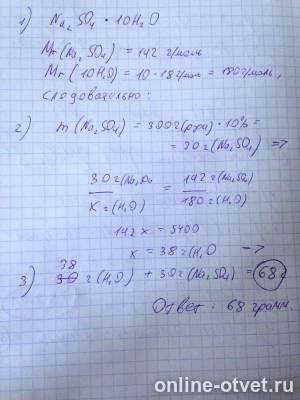 1) Na₂SO₄ · 10H₂O
Mr(Na₂SO₄) = 142 г/моль
Mr(10H₂O) = 10·18 г/моль = 180 г/моль,
следовательно:
2) m(Na₂SO₄) = 300г(р-ра)·10% =
= 30г(Na₂SO₄) =>
30г(Na₂SO₄) / x г(H₂O) = 142г(Na₂SO₄) / 180г(H₂O)
142x = 5400
x = 38г(H₂O) =>
3) 38 г(H₂O) + 30г(Na₂SO₄) = 68г
Ответ: 68 грамм.
online-otvet.ru